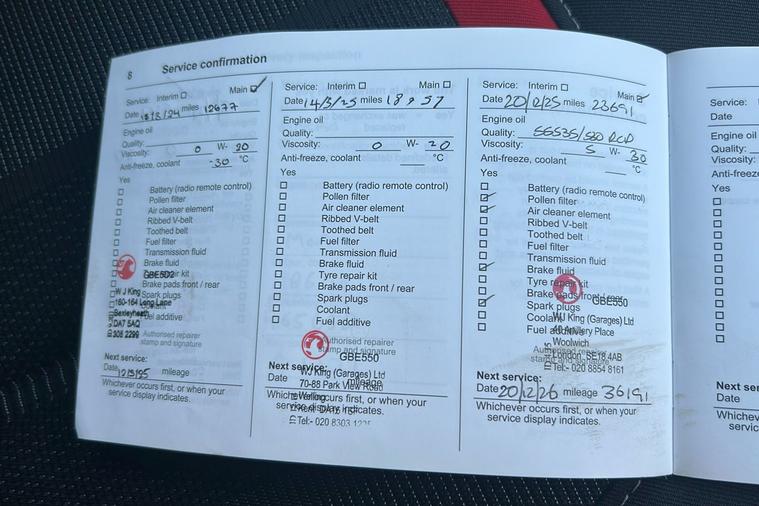 8 Service confirmation
Service: Interim ☐ Main ☑
Date 18/3/24 miles 12677
Engine oil
Quality:
Viscosity: 0 W- 20
Anti-freeze, coolant -30 °C
Yes
☐ Battery (radio remote control)
☐ Pollen filter
☐ Air cleaner element
☐ Ribbed V-belt
☐ Toothed belt
☐ Fuel filter
☐ Transmission fluid
☐ Brake fluid
Tyre repair kit
GBE5D2
☐ Brake pads front / rear
W J King
Spark plugs
160-164 Long Lane
Coolant
Bexleyheath
Fuel additive
DA7 5AQ
Authorised repairer
stamp and signature
Next service:
Date mileage
Whichever occurs first, or when your
service display indicates.
Service: Interim ☐ Main ☐
Date 14/3/25 miles
Engine oil
Quality:
Viscosity: 0 W- 20
Anti-freeze, coolant °C
Yes
☐ Battery (radio remote control)
☐ Pollen filter
☐ Air cleaner element
☐ Ribbed V-belt
☐ Toothed belt
☐ Fuel filter
☐ Transmission fluid
☐ Brake fluid
☐ Tyre repair kit
☐ Brake pads front / rear
☐ Spark plugs
☐ Coolant
☐ Fuel additive
Authorised repairer
stamp and signature
GBE550
WJ King (Garages) Ltd
Next service:
Date mileage
70-88 Park View Road
Whichever occurs first, or when your
Welling
service display indicates.
Tel:- 020 8303
Service: Interim ☐ Main ☑
Date 20/12/25 miles 23691
Engine oil
Quality:
Viscosity: 5 W- 30
Anti-freeze, coolant °C
Yes
☐ Battery (radio remote control)
☑ Pollen filter
☑ Air cleaner element
☐ Ribbed V-belt
☐ Toothed belt
☐ Fuel filter
☐ Transmission fluid
☑ Brake fluid
☐ Tyre repair kit
☐ Brake pads front / rear
GBE550
☑ Spark plugs
☐ Coolant
WJ King (Garages) Ltd
☐ Fuel additive
Artillery Place
Woolwich
Authorised repairer
stamp and signature
London SE18 4AB
Tel:- 020 8854 8161
Next service:
Date 20/12/26 mileage 36191
Whichever occurs first, or when your
service display indicates.
Service:
Date
Engine oil
Quality:
Viscosity:
Anti-freeze
Yes
Next ser
Date
Whichev
servic